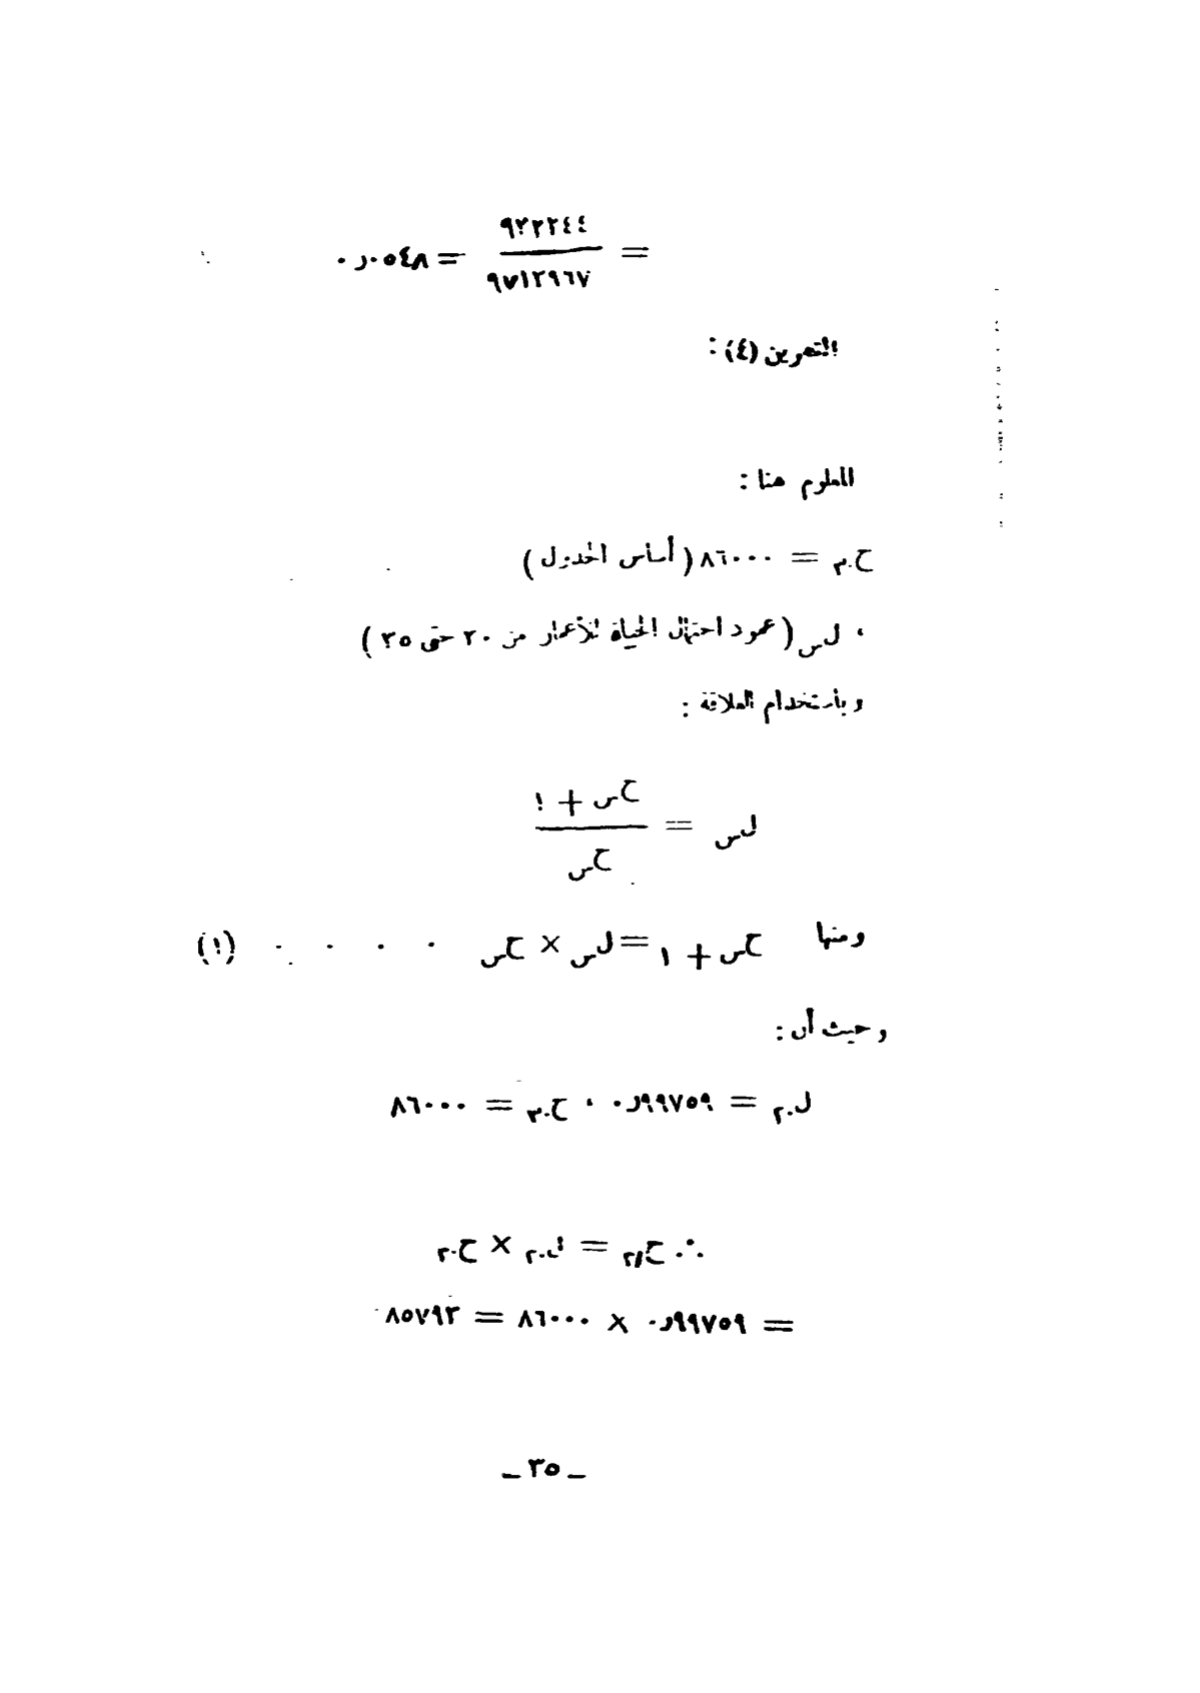 = ٩٢٢٢٤٤ / ٩٧١٢٩٦٧ = ٠٫٠٥٤٨
التمرين (٤) :
المعلوم هنا :
ح٢٠ = ٨٦٠٠٠ ( أساس الجدول )
، لس ( عمود احتمال الحياة للأعمار من ٢٠ حتى ٢٥ )
وبأستخدام العلاقة :
لس = حس + ١ / حس
ومنها حس + ١ = لس × حس . . . . (١)
وحيث أن :
ل٢٠ = ٠٫٩٩٧٥٩ ، ح٢٠ = ٨٦٠٠٠
∴ ح٢١ = ل٢٠ × ح٢٠
= ٠٫٩٩٧٥٩ × ٨٦٠٠٠ = ٨٥٧٩٣
– ٣٥ –